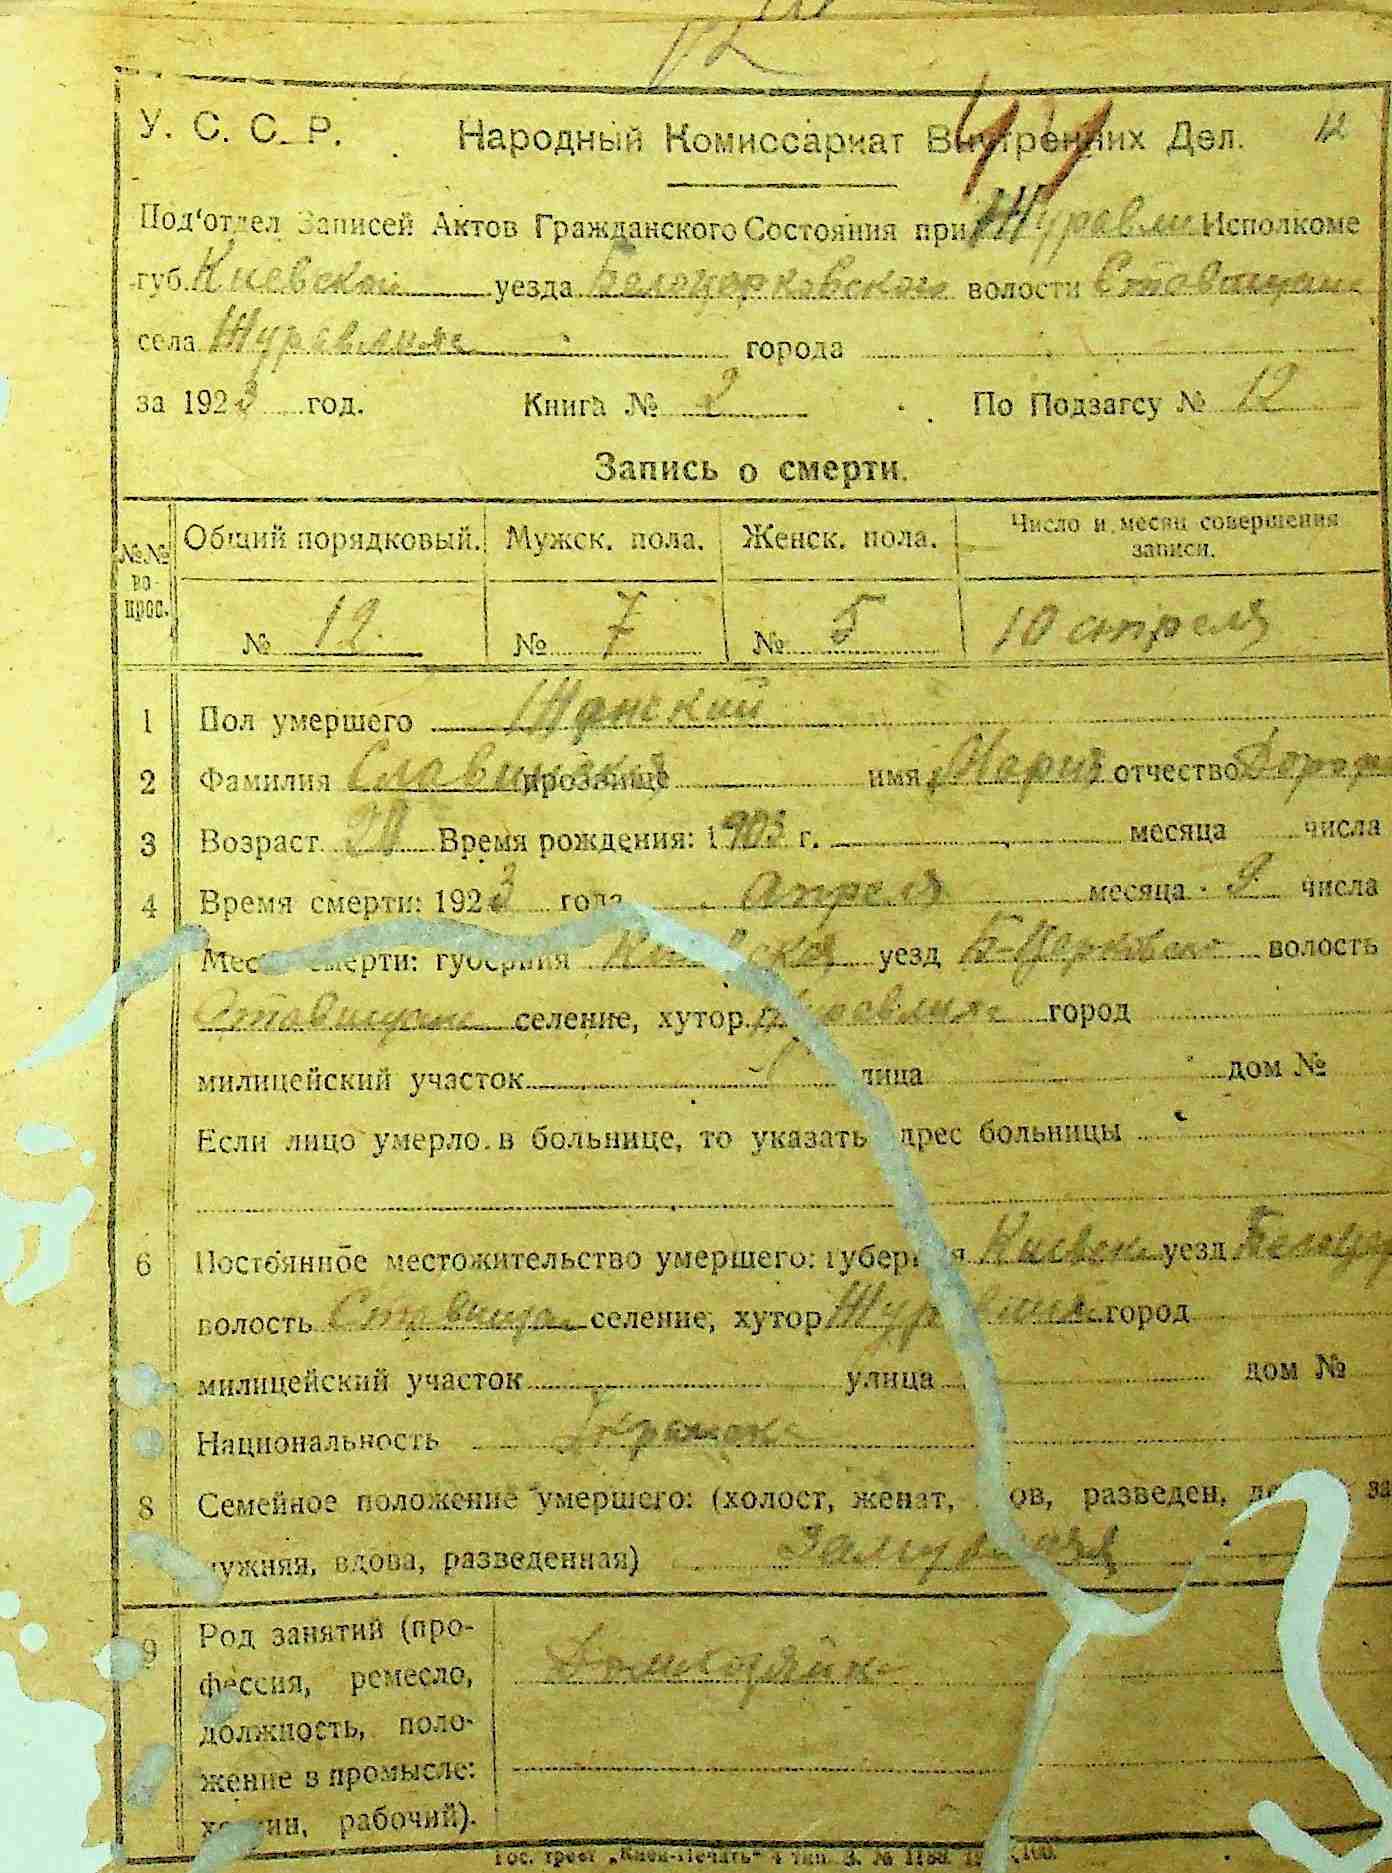 У. С. С. Р. Народный Комиссариат Внутренних Дел. 12
Под'отдел Записей Актов Гражданского Состояния при Журавли Исполкоме
губ. Киевской уезда Белоцерковского волости Ставищан
села Журавлиха города
за 1923 год. Книга № 2 По Подзагсу № 12
Запись о смерти.
№№ вопрос. Общий порядковый. Мужск. пола. Женск. пола. Число и месяц совершения записи.
№ 12. № 7 № 5 10 апреля
1 Пол умершего Женский
2 Фамилия Славинская прозвище имя Мария отчество
3 Возраст 20 Время рождения: 1903 г. месяца числа
4 Время смерти: 1923 года апреля месяца 9 числа
Место смерти: губерния Киевская уезд Б-Церковско волость
Ставищан селение, хутор Журавлиха город
милицейский участок улица дом №
Если лицо умерло в больнице, то указать адрес больницы
6 Постоянное местожительство умершего: губерния Киевск уезд Белоцер
волость Ставищан селение, хутор Журавлиха город
милицейский участок улица дом №
Национальность
8 Семейное положение умершего: (холост, женат, вдов, разведен, за
мужняя, вдова, разведенная) Замужняя
9 Род занятий (про-
фессия, ремесло,
должность, поло-
жение в промысле:
хозяин, рабочий).
Гос. трест „Киев-Печать“ 4 тип. З. №